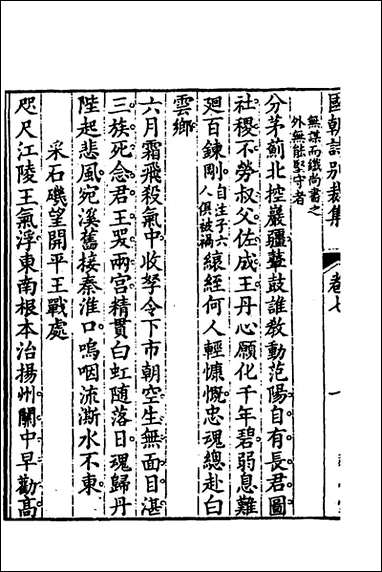 國朝詩別裁集 卷七 一
無謀而鐵尚書之
外無能堅守者
分茅薊北控巖疆鼙鼓誰教動范陽自有長君圖
社稷不勞叔父佐成王丹心願化千年碧弱息難
廻百鍊剛自注子六人俱被禍縗絰何人輕慷慨忠魂總赴白
雲鄉
六月霜飛殺氣中收孥令下市朝空生無面目湛
三族死念君王哭兩宮精貫白虹隨落日魂歸丹
陛起悲風宛溪舊接秦淮口嗚咽流澌水不東
采石磯望開平王戰處
咫尺江陵王氣浮東南根本治揚州關中早勸高